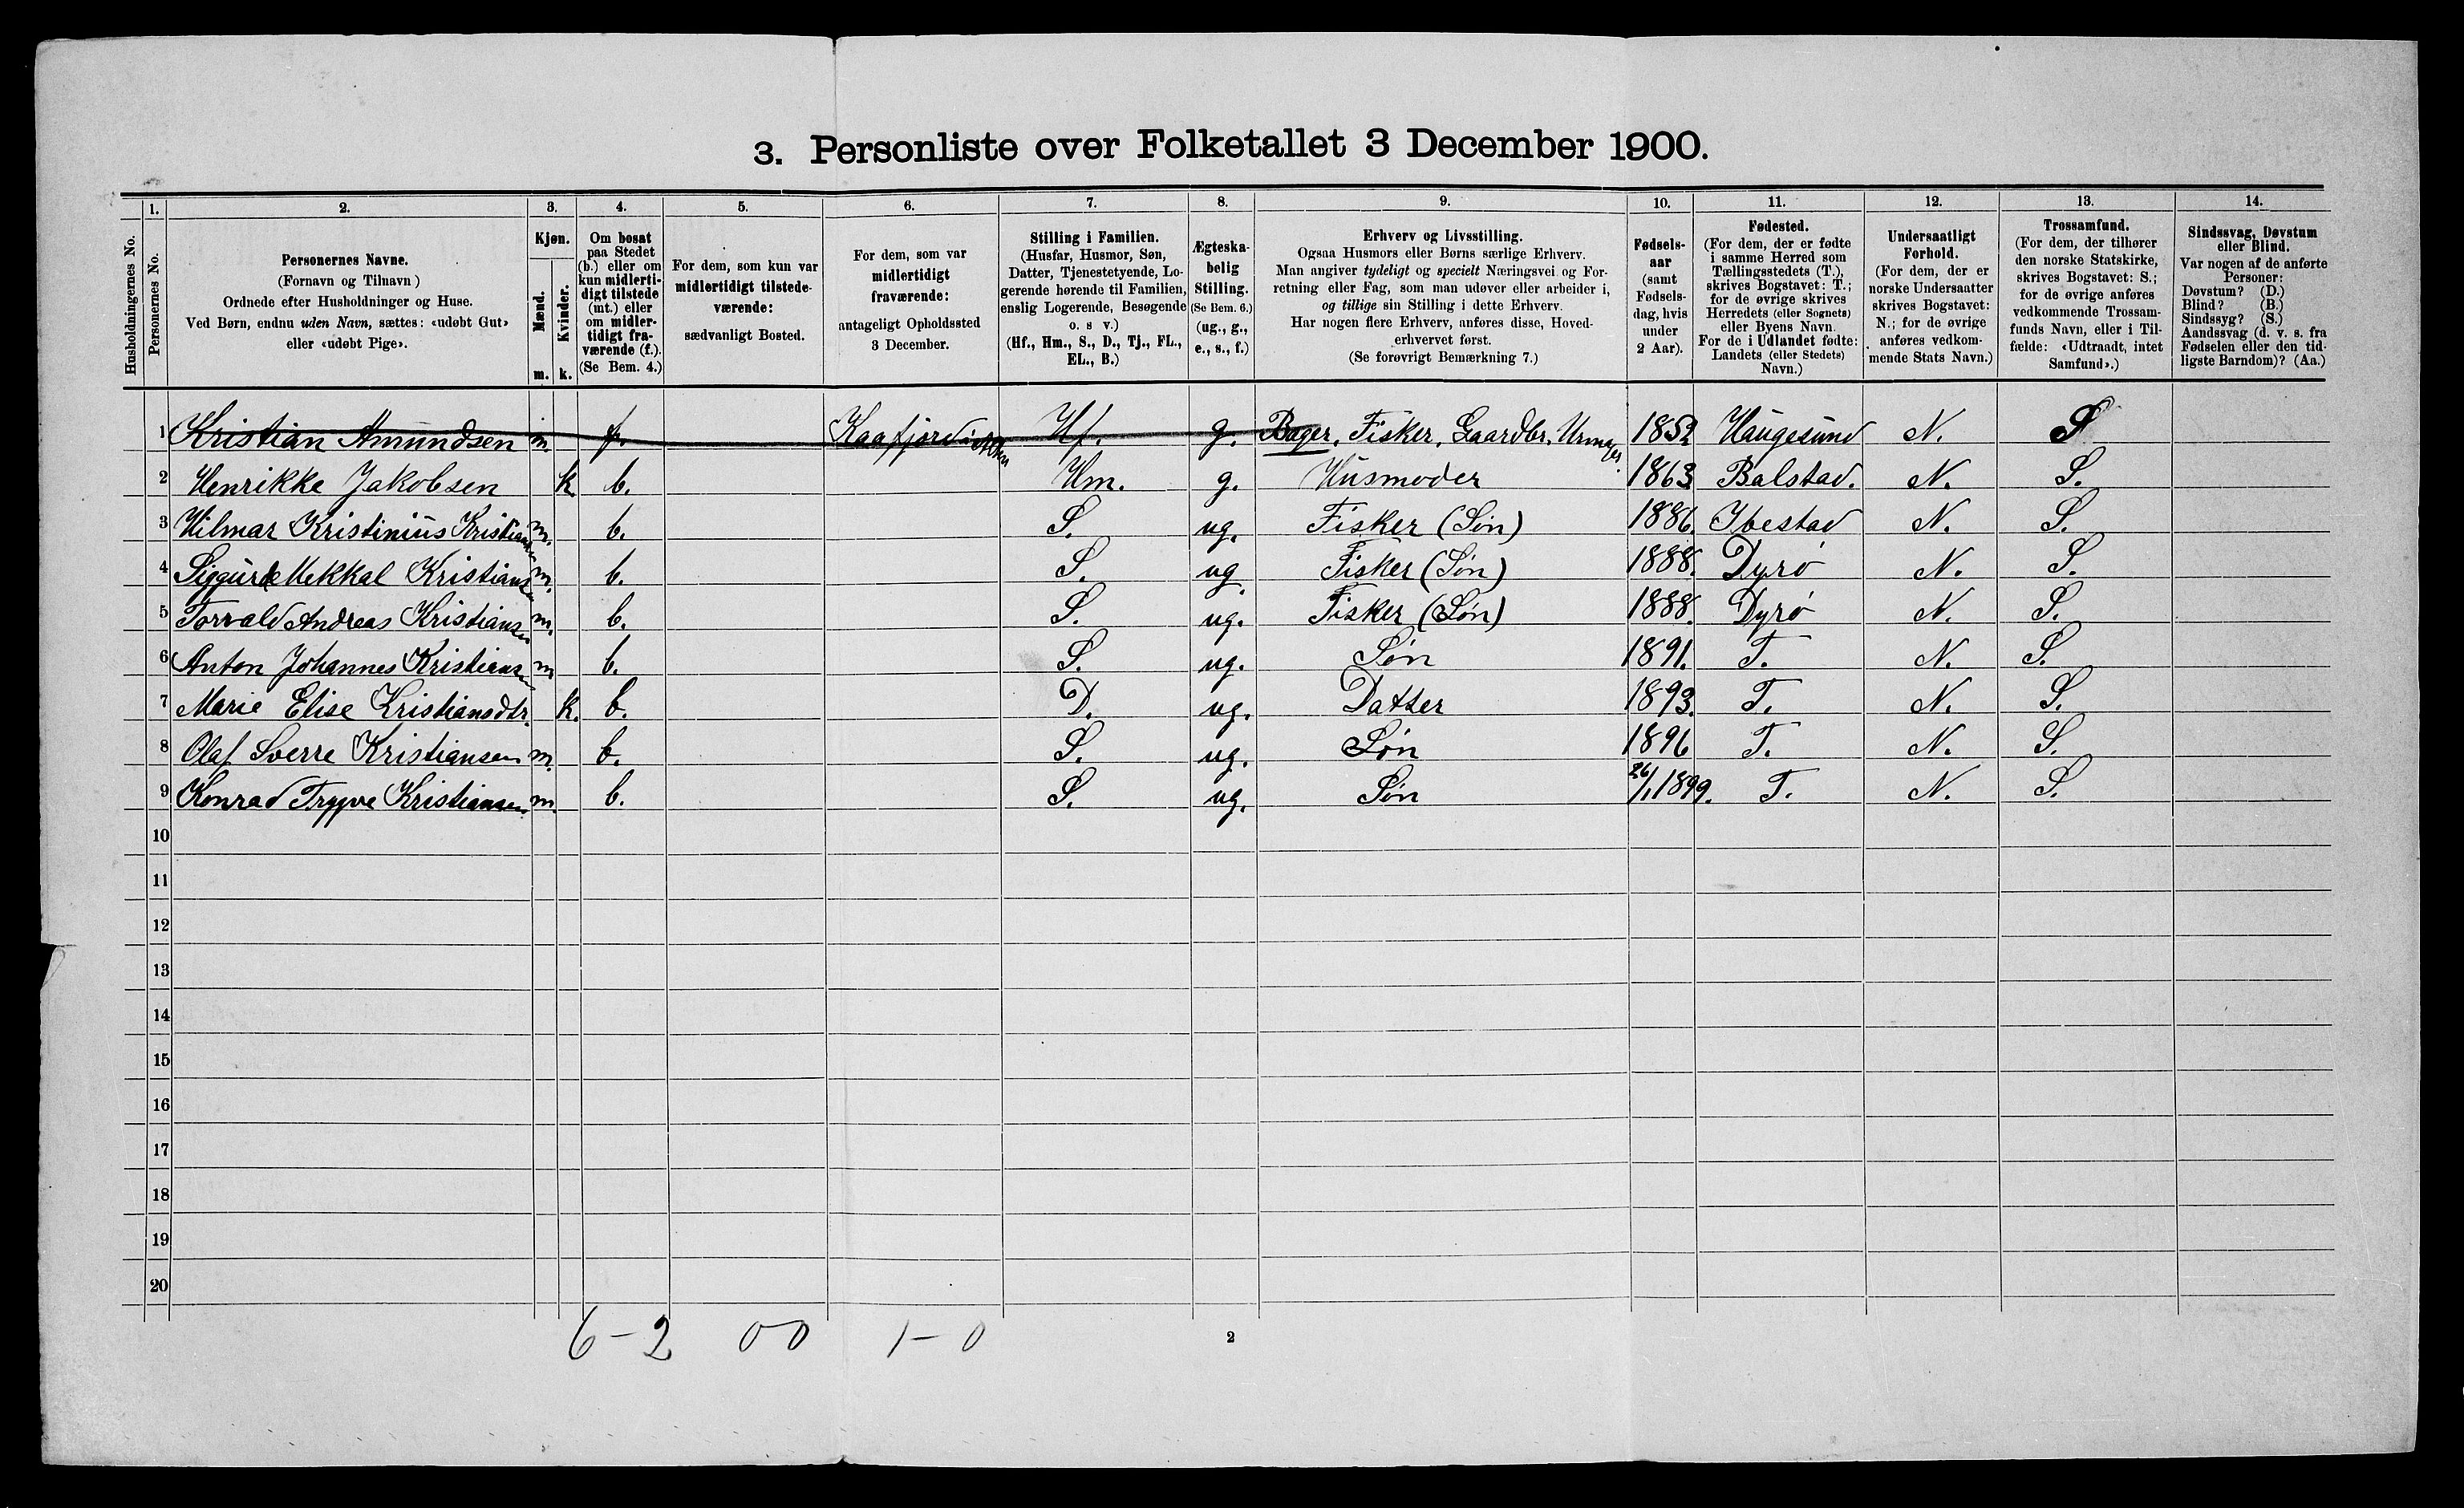 3. Personliste over Folketallet 3 December 1900.
1. 2. 3. 4. 5. 6. 7. 8. 9. 10. 11. 12. 13. 14.
Husholdningernes No.
Personernes No.
Personernes Navne.
(Fornavn og Tilnavn)
Ordnede efter Husholdninger og Huse.
Ved Børn, endnu uden Navn, sættes: «udøbt Gut»
eller «udøbt Pige».
Kjøn.
Mænd.
Kvinder.
m. k.
Om bosat
paa Stedet
(b.) eller om
kun midlerti-
digt tilstede
(mt.) eller
om midler-
tidigt fra-
værende (f.).
(Se Bem. 4.)
For dem, som kun var
midlertidigt tilstede-
værende:
sædvanligt Bosted.
For dem, som var
midlertidigt
fraværende:
antageligt Opholdssted
3 December.
Stilling i Familien.
(Husfar, Husmor, Søn,
Datter, Tjenestetyende, Lo-
gerende hørende til Familien,
enslig Logerende, Besøgende
o. s v.)
(Hf., Hm., S., D., Tj., FL.,
EL., B.)
Ægteska-
belig
Stilling.
(Se Bem. 6.)
(ug., g.,
e., s., f.)
Erhverv og Livsstilling.
Ogsaa Husmors eller Børns særlige Erhverv.
Man angiver tydeligt og specielt Næringsvei og For-
retning eller Fag, som man udøver eller arbeider i,
og tillige sin Stilling i dette Erhverv.
Har nogen flere Erhverv, anføres disse, Hoved-
erhvervet først.
(Se forøvrigt Bemærkning 7.)
Fødsels-
aar
(samt
Fødsels-
dag, hvis
under
2 Aar).
Fødested.
(For dem, der er fødte
i samme Herred som
Tællingsstedets (T.),
skrives Bogstavet: T.;
for de øvrige skrives
Herredets (eller Sognets)
eller Byens Navn.
For de i Udlandet fødte:
Landets (eller Stedets)
Navn.)
Undersaatligt
Forhold.
(For dem, der er
norske Undersaatter
skrives Bogstavet:
N.; for de øvrige
anføres vedkom-
mende Stats Navn.)
Trossamfund.
(For dem, der tilhører
den norske Statskirke,
skrives Bogstavet: S.;
for de øvrige anføres
vedkommende Trossam-
funds Navn, eller i Til-
fælde: «Udtraadt, intet
Samfund».)
Sindssvag, Døvstum
eller Blind.
Var nogen af de anførte
Personer:
Døvstum? (D.)
Blind? (B.)
Sindssyg? (S.)
Aandssvag (d. v. s. fra
Fødselen eller den tid-
ligste Barndom)? (Aa.)
1 Kristian Amundsen m. f. Kaafjord Hf. g. Bager, Fisker, Gaardbr, Urmager. 1852 Haugesund N. S
2 Henrikke Jakobsen k b. Hm. g. Husmoder 1863 Balstad. N. S.
3 Hilmar Kristinius Kristiansen m. b. S. ug. Fisker (Søn) 1886. Ibestad N. S.
4 Sigurd Mekkal Kristiansen m. b. S. ug Fisker (Søn) 1888. Dyrø N. S.
5 Torvald Andreas Kristiansen m. b. S. ug. Fisker (Søn) 1888. Dyrø N. S.
6 Anton Johannes Kristiansen m b. S. ug. Søn 1891. T. N. S.
7 Marie Elise Kristiansdtr. k. b. D. ug. Datter 1893. T. N. S.
8 Olaf Sverre Kristiansen m. b. S. ug. Søn 1896 T. N. S.
9 Konrad Trygve Kristiansen m. b. S. ug. Søn 26/1 1899. T. N. S.
10
11
12
13
14
15
16
17
18
19
20
6-2 00 1-0
2